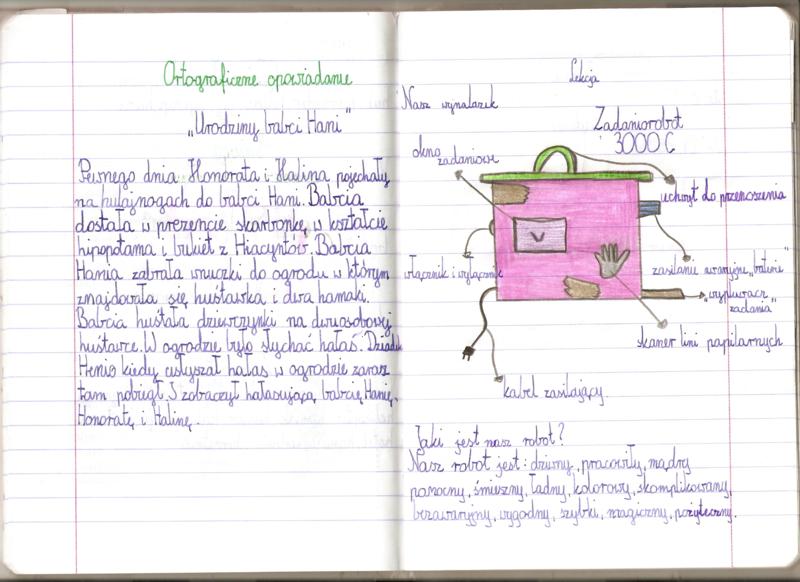 Ortograficzne opowiadanie
„Urodziny babci Hani"
Pewnego dnia Honorata i Halina pojechały
na hulajnogach do babci Hani. Babcia
dostała w prezencie skarbonkę w kształcie
hipopotama i bukiet z Hiacyntów. Babcia
Hania zabrała wnuczki do ogrodu w którym
znajdowała się huśtawka i dwa hamaki.
Babcia huśtała dziewczynki na dwuosobowej
huśtawce. W ogrodzie było słychać hałaś. Dziadek
Henio kiedy usłyszał hałas w ogrodzie zaraz
tam pobiegł. I zobaczył hałasującą babcię Hanię,
Honoratę i Halinę.
Lekcja
Nasz wynalazek
Zadaniorobot
3000 C
okno zadaniowe
uchwyt do przenoszenia
włącznik i wyłącznik
zasilanie awaryjne „baterie"
„wypluwacz
zadania"
skaner lini papilarnych
kabel zasilający
Jaki jest nasz robot?
Nasz robot jest: dziwny, pracowity, mądry
pomocny, śmieszny, ładny, kolorowy, skomplikowany,
bezawaryjny, wygodny, szybki, magiczny, pożyteczny.